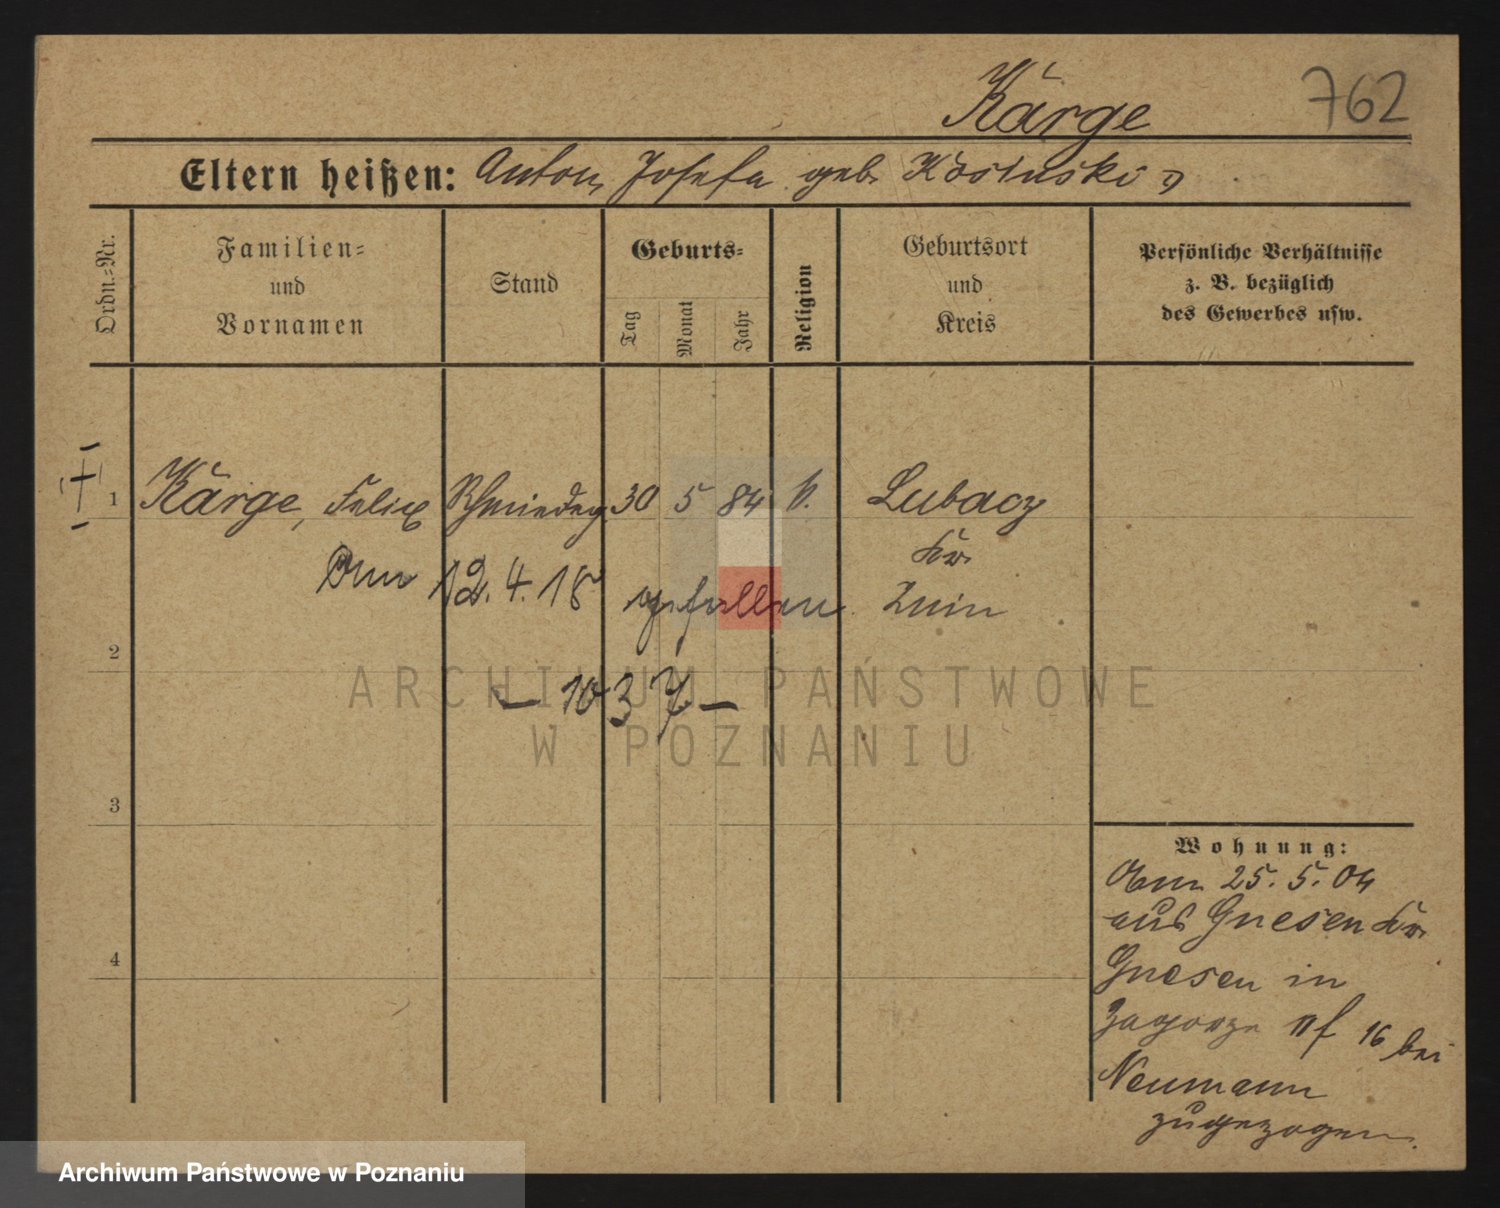 Kärge 762
Eltern heißen: Anton, Josefa geb. Kosinski
Ordn.-Nr.
Familien-
und
Vornamen
Stand
Geburts-
Tag
Monat
Jahr
Religion
Geburtsort
und
Kreis
Persönliche Verhältnisse
z. B. bezüglich
des Gewerbes usw.
1 Kärge, Felix Schmiedeg. 30 5 84 k. Lubacz
Kr.
Znin
Am 12.4.18 gefallen
2
— 1037 —
3
4
ARCHIWUM PAŃSTWOWE
W POZNANIU
Wohnung:
Am 25.5.04
aus Gnesen Kr.
Gnesen in
Zagorze 16 bei
Neumann
zugezogen.
Archiwum Państwowe w Poznaniu